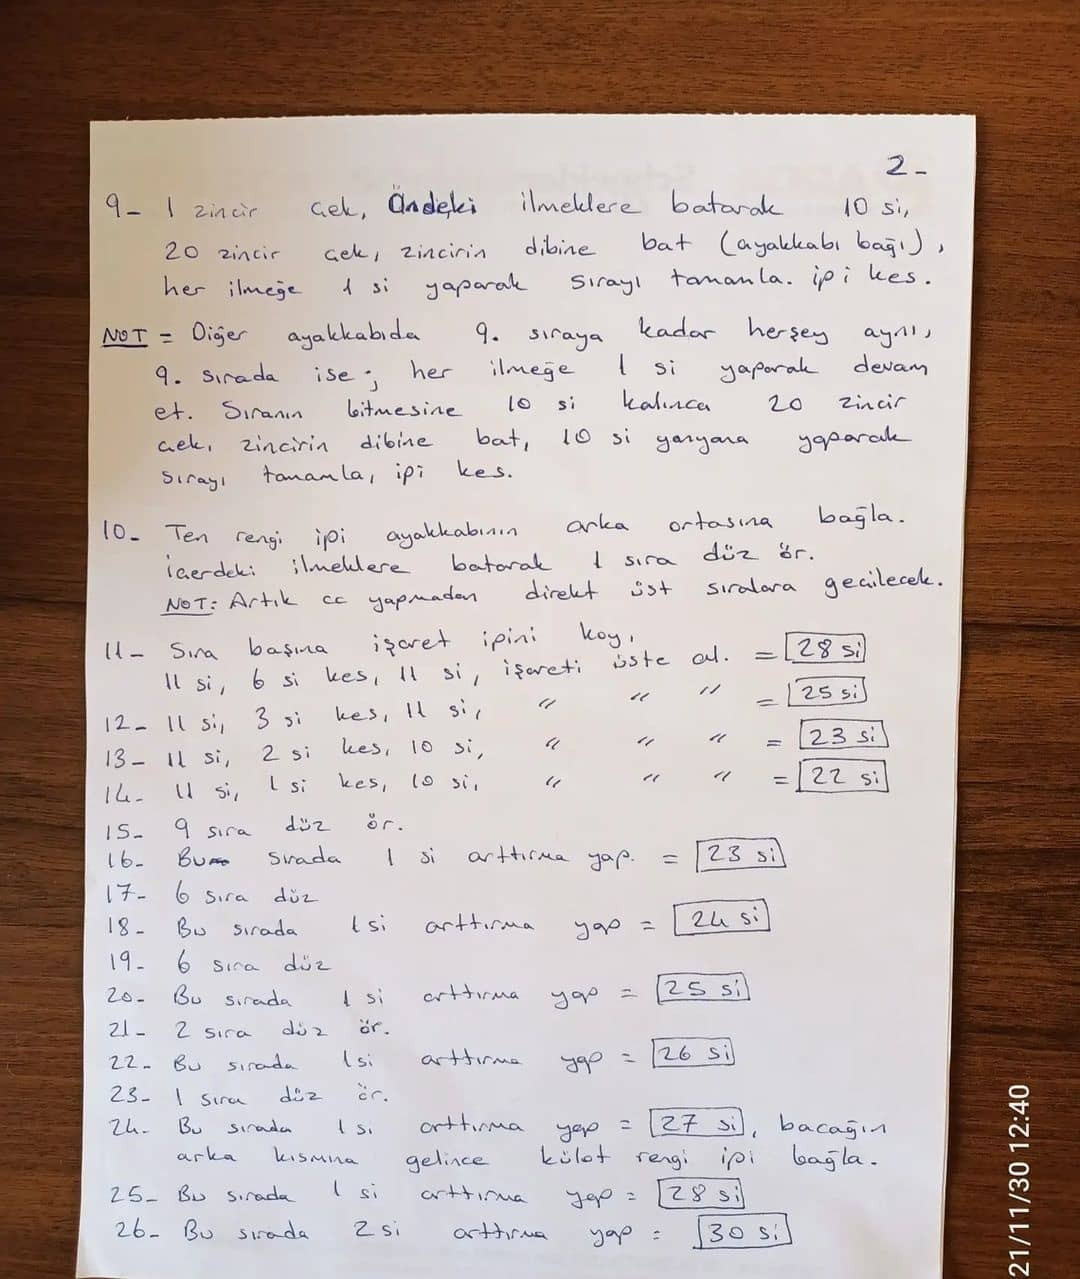 2-
9- 1 zincir çek, Öndeki ilmeklere batarak 10 si,
20 zincir çek, zincirin dibine bat (ayakkabı bağı),
her ilmeğe 1 si yaparak sırayı tamamla. ipi kes.
NOT = Diğer ayakkabıda 9. sıraya kadar herşey aynı,
9. sırada ise; her ilmeğe 1 si yaparak devam
et. Sıranın bitmesine 10 si kalınca 20 zincir
çek, zincirin dibine bat, 10 si yanyana yaparak
sırayı tamamla, ipi kes.
10- Ten rengi ipi ayakkabının arka ortasına bağla.
İçerdeki ilmeklere batarak 1 sıra düz ör.
NOT: Artık cc yapmadan direkt üst sıralara geçilecek.
11- Sıra başına işaret ipini koy,
11 si, 6 si kes, 11 si, işareti üste al. = 28 si
12- 11 si, 3 si kes, 11 si, " " " = 25 si
13- 11 si, 2 si kes, 10 si, " " " = 23 si
14- 11 si, 1 si kes, 10 si, " " " = 22 si
15- 9 sıra düz ör.
16- Bu sırada 1 si arttırma yap. = 23 si
17- 6 sıra düz
18- Bu sırada 1 si arttırma yap = 24 si
19- 6 sıra düz
20- Bu sırada 1 si arttırma yap = 25 si
21- 2 sıra düz ör.
22- Bu sırada 1 si arttırma yap = 26 si
23- 1 sıra düz ör.
24- Bu sırada 1 si arttırma yap = 27 si, bacağın
arka kısmına gelince külot rengi ipi bağla.
25- Bu sırada 1 si arttırma yap = 28 si
26- Bu sırada 2 si arttırma yap = 30 si
21/11/30 12:40